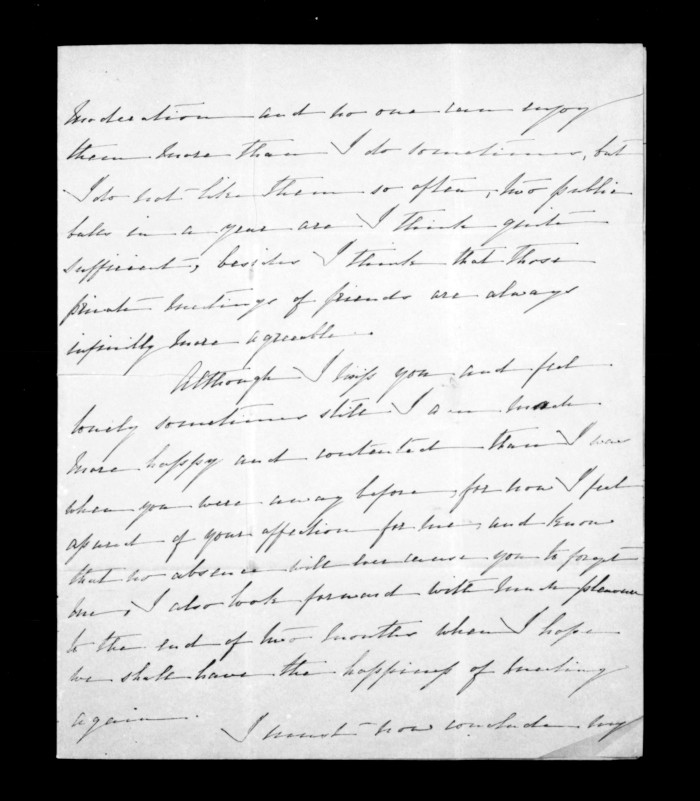 moderation and no one can enjoy
them more than I do sometimes, but
I do not like them so often, two public
balls in a year are I think quite
sufficient, besides I think that those
private meetings of friends are always
infinitly more agreeable.
Although I miss you and feel
lonely sometimes still I am much
more happy and contented than I was
when you were away before, for now I feel
apured of your affection for me and know
that no absence will ever cause you to forget
me, I also look forward with much pleasure
to the end of two months when I hope
we shall have the happiness of meeting
again.
I must now conclude my